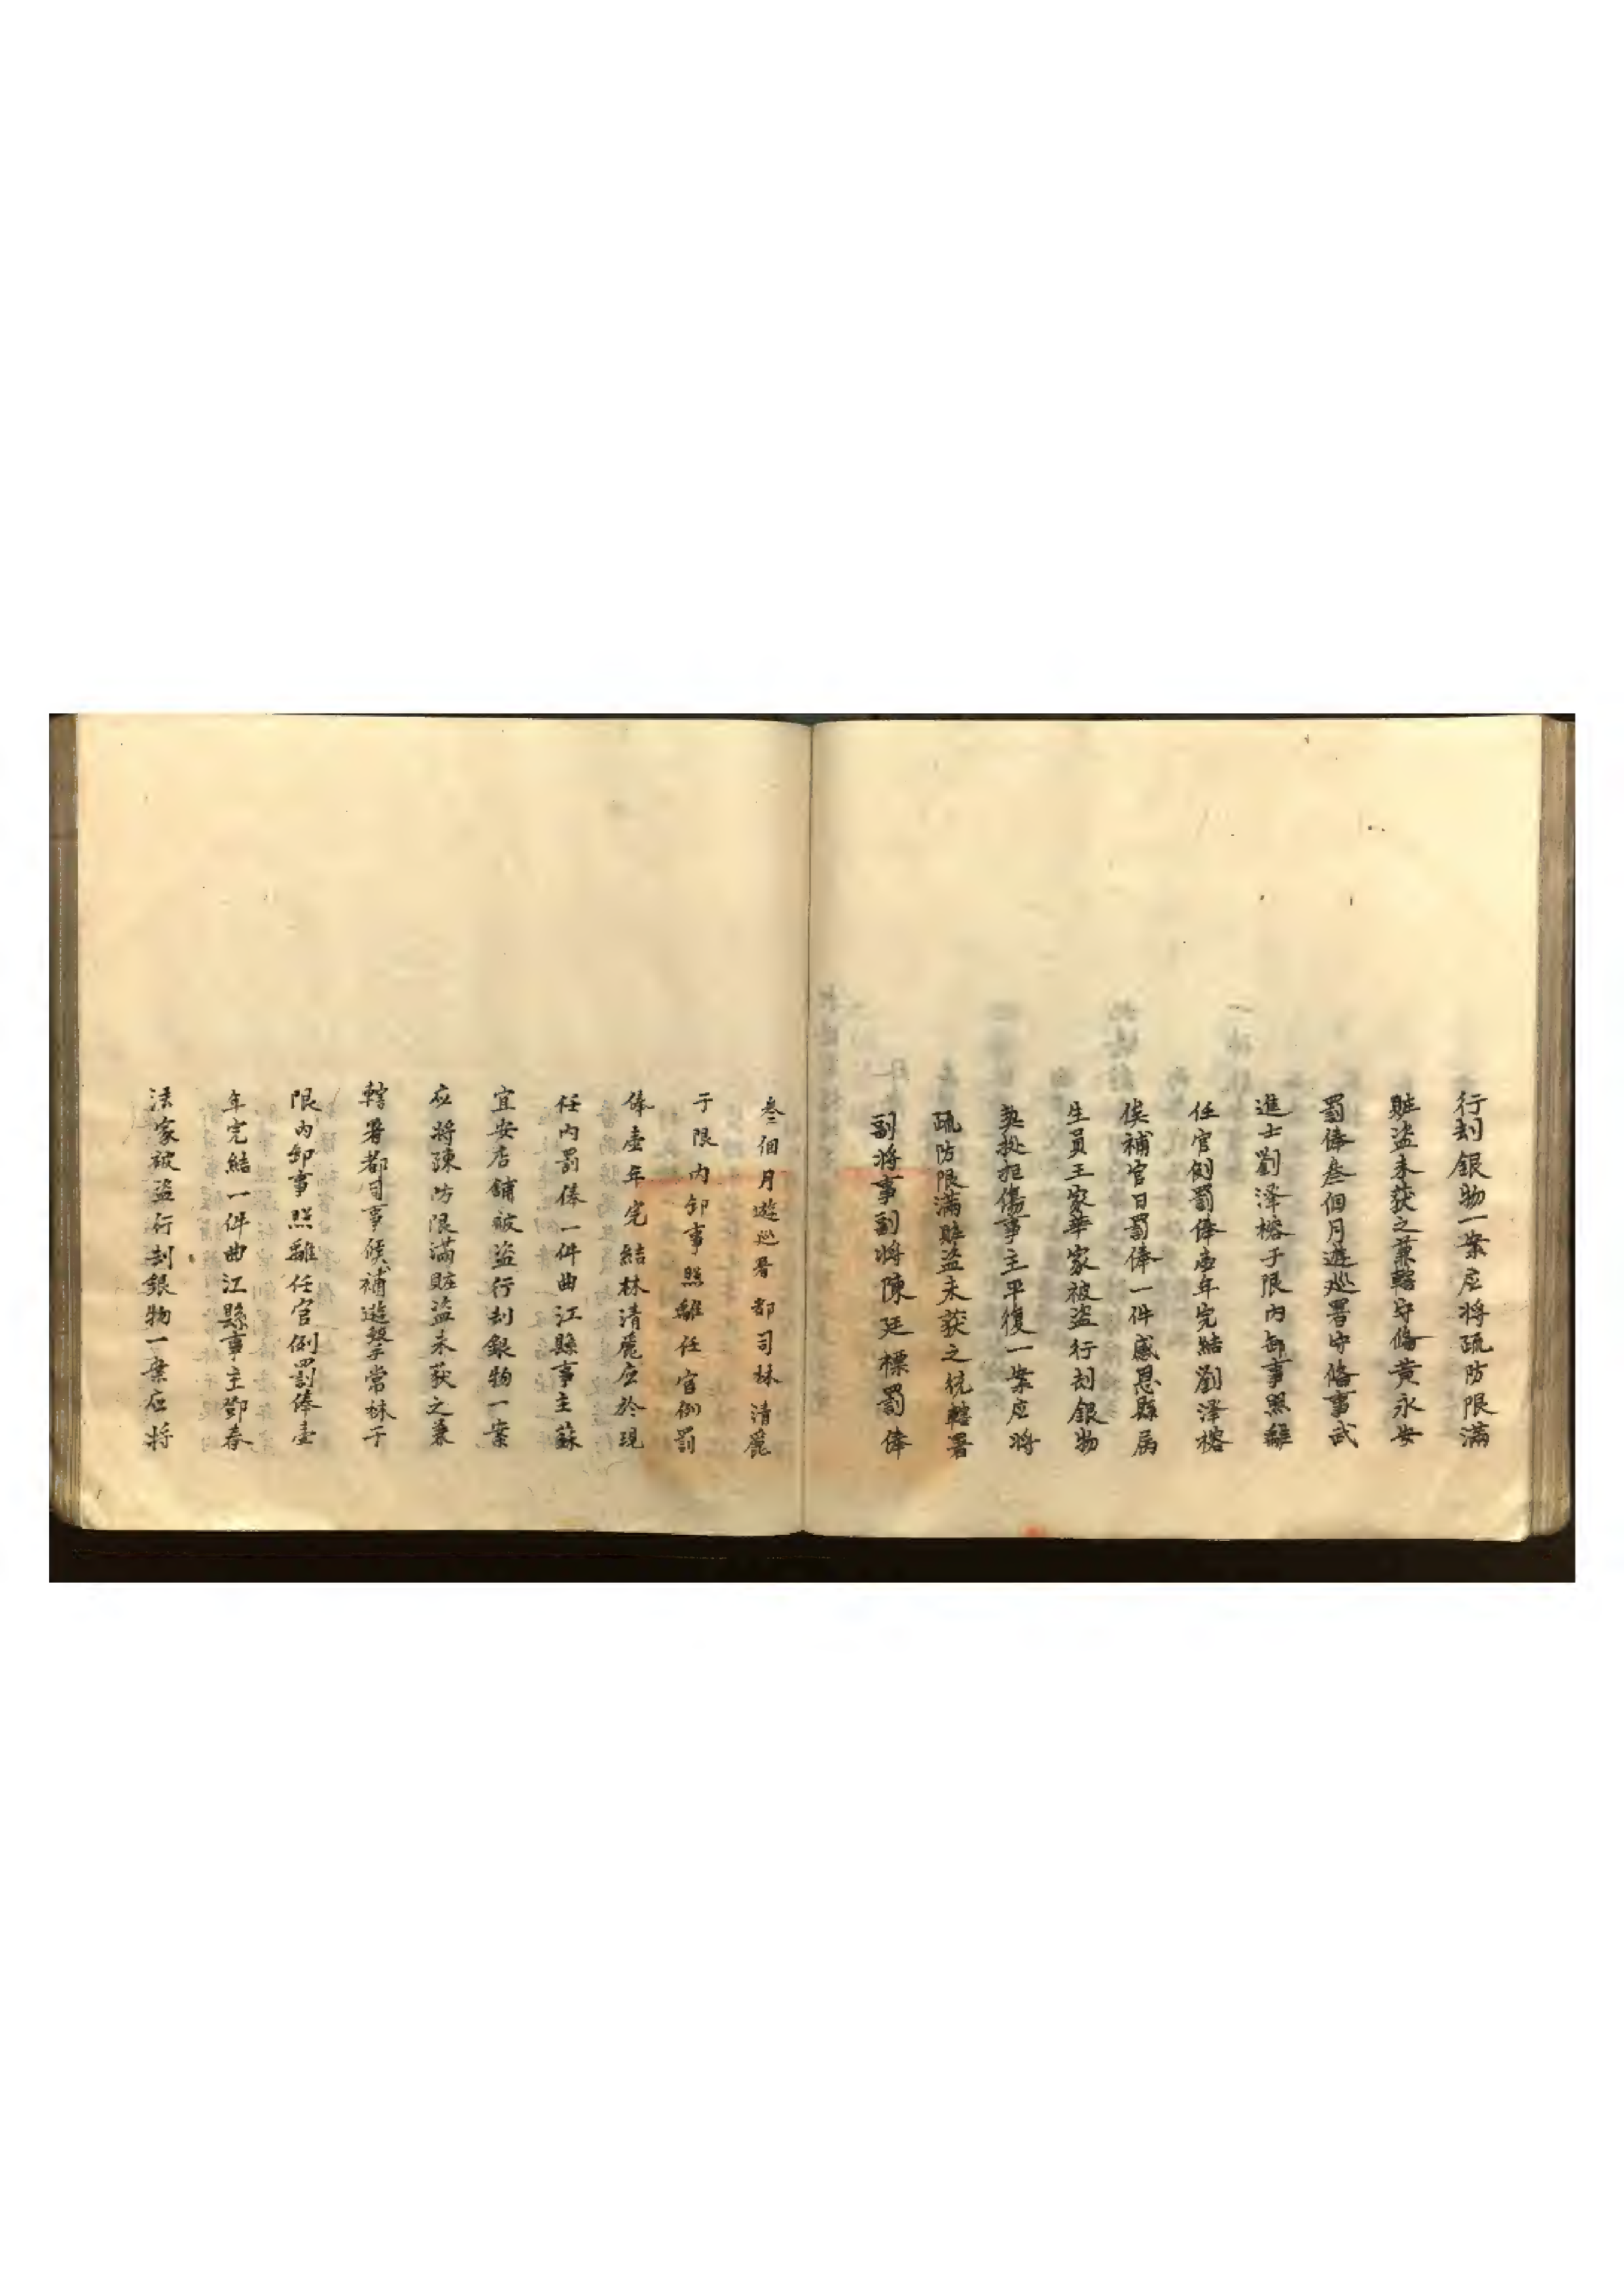 行刦銀物一案应将疏防限滿
賍盗未获之兼轄守俻黄永安
罰俸叁個月遊巡署守俻事武
進士劉泽榕于限内卸事照離
任官例罰俸壹年完結劉泽榕
俟補官日罰俸一件感恩縣属
生員王家華家被盗行刦銀物
拒傷事主平復一案应将
疏防限滿賍盗未获之统轄署
副将事副将陳廷標罰俸
叁個月遊巡署都司林清麗
于限内卸事照離任官例罰
俸壹年完結林清麗应於現
任内罰俸一件曲江縣事主蘇
宜安店舖被盗行刦銀物一案
应將陳防限滿賍盗未获之兼
轄署都司事候補遊擊常林于
限内卸事照離任官例罰俸壹
年完結一件曲江縣事主鄧春
法家被盗行刦銀物一案应将